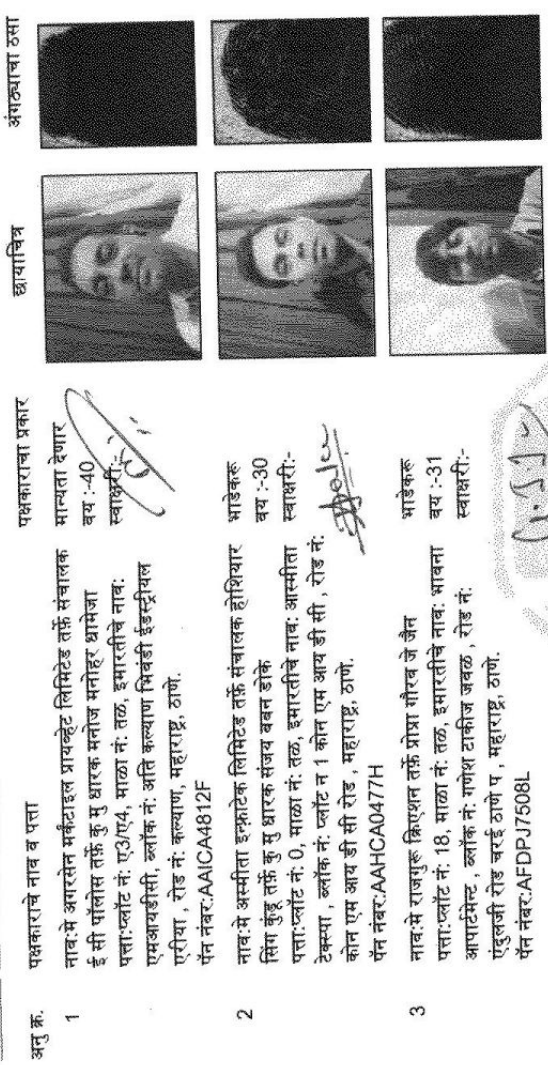 अनु क्र. पक्षकाराचे नाव व पत्ता पक्षकाराचा प्रकार छायाचित्र अंगठ्याचा ठसा
1 नाव:मे अगरसेन मर्कंटाइल प्रायव्हेट लिमिटेड तर्फे संचालक
ई सी पॉलोस तर्फे कु मु धारक मनोज मनोहर धामेजा
पत्ता:प्लॉट नं: ए3/ए4, माळा नं: तळ, इमारतीचे नाव:
एमआयडीसी, ब्लॉक नं: अति कल्याण भिवंडी ईंडस्ट्रीयल
एरीया , रोड नं: कल्याण, महाराष्ट्र, ठाणे.
पॅन नंबर:AAICA4812F
मान्यता देणार
वय :-40
स्वाक्षरी:-
2 नाव:मे अस्मीता इन्फ्राटेक लिमिटेड तर्फे संचालक होशियार
सिंग कुंडू तर्फे कु मु धारक संजय बबन डोके
पत्ता:प्लॉट नं: 0, माळा नं: तळ, इमारतीचे नाव: आस्मीता
टेक्स्पा , ब्लॉक नं: प्लॉट न 1 कोन एम आय डी सी , रोड नं:
कोन एम आय डी सी रोड , महाराष्ट्र, ठाणे.
पॅन नंबर:AAHCA0477H
भाडेकरू
वय :-30
स्वाक्षरी:-
3 नाव:मे राजगुरू क्रिएशन तर्फे प्रोप्रा गौरव जे जैन
पत्ता:प्लॉट नं: 18, माळा नं: तळ, इमारतीचे नाव: भावना
आपार्टमेन्ट , ब्लॉक नं: गणेश टाकीज जवळ , रोड नं:
एंदुलजी रोड चरई ठाणे प , महाराष्ट्र, ठाणे.
पॅन नंबर:AFDPJ7508L
भाडेकरू
वय :-31
स्वाक्षरी:-